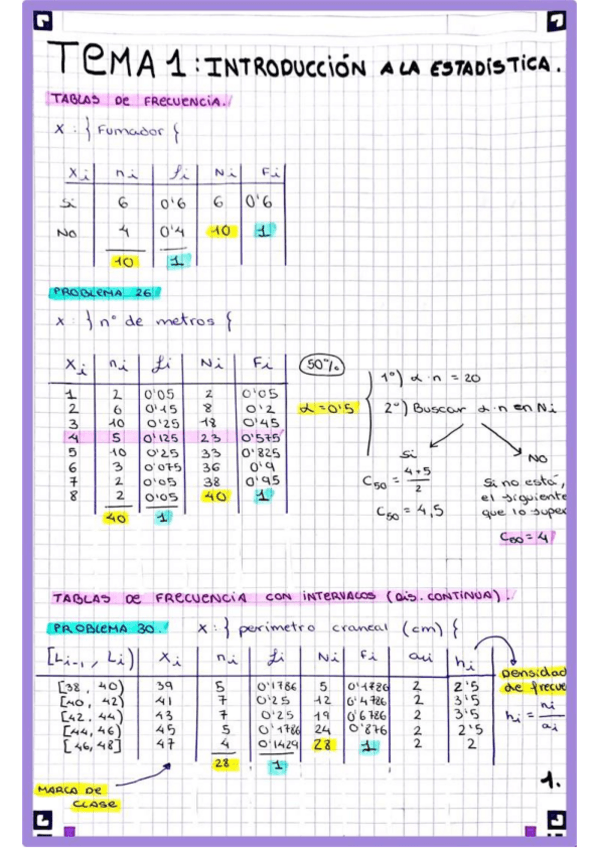 TEMA 1: INTRODUCCIÓN A LA ESTADÍSTICA.
TABLAS DE FRECUENCIA.
X: { Fumador {
Xi ni fi Ni Fi
Si 6 0'6 6 0'6
No 4 0'4 10 1
10 1
PROBLEMA 26
X: { nº de metros {
Xi ni fi Ni Fi
1 2 0'05 2 0'05
2 6 0'15 8 0'2
3 10 0'25 18 0'45
4 5 0'125 23 0'575
5 10 0'25 33 0'825
6 3 0'075 36 0'9
7 2 0'05 38 0'95
8 2 0'05 40 1
40 1
50%
α = 0'5
1º) α·n = 20
2º) Buscar α·n en Ni
Si
C50 = 4+5/2
C50 = 4,5
NO
Si no está,
el siguiente
que lo super
C50 = 4
TABLAS DE FRECUENCIA CON INTERVALOS (DIS. CONTINUA).
PROBLEMA 30. X: { perímetro craneal (cm) {
[Li-1, Li) Xi ni fi Ni Fi ai hi
[38, 40) 39 5 0'1786 5 0'1786 2 2'5
[40, 42) 41 7 0'25 12 0'4786 2 3'5
[42, 44) 43 7 0'25 19 0'6786 2 3'5
[44, 46) 45 5 0'1786 24 0'876 2 2'5
[46, 48] 47 4 0'1429 28 1 2 2
28 1
Densidad
de frecue
hi = ni/ai
MARCA DE
CLASE
1.